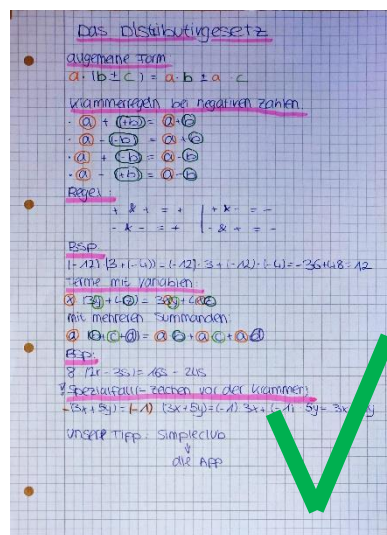 Das Distributivgesetz
allgemeine Form
a · (b ± c) = a · b ± a · c
Klammerregeln bei negativen Zahlen
· a + (+b) = a+b
· a - (-b) = a+b
· a + (-b) = a-b
· a - (+b) = a-b
Regel:
+ & + = + | + & - = -
- & - = + | - & + = -
BSP.
(-12) (3+(-4)) = (-12) · 3 + (-12) · (-4) = -36+48 = 12
Terme mit Variablen
mit mehreren Summanden:
a (b+c+d) = ab + ac + ad
Bsp:
! Spezialfall (- zeichen vor der Klammer)
-(3x + 5y) = (-1) (3x + 5y) = (-1) 3x + (-1) 5y =
unsere Tipp: Simpleclub
↓
die App